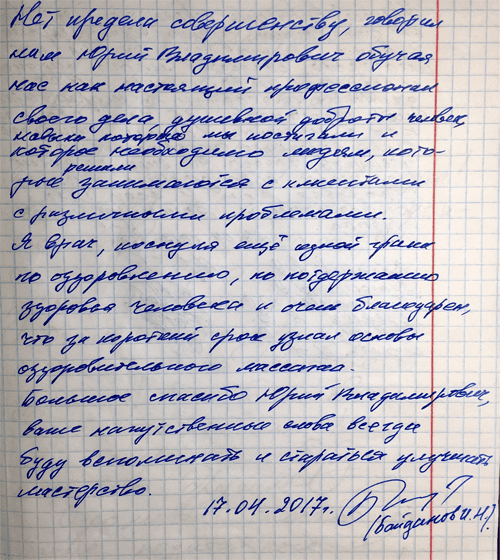 Нет предела совершенству, говорил
нам Юрий Владимирович обучая
нас как настоящий профессионал
своего дела, душевной доброты человек,
навыки которые мы постигали и
которое необходимо людям, кото-
решили
рые заниматься с клиентами
с различными проблемами.
Я врач, коснулся ещё одной грани
по оздоровлению, по поддержанию
здоровья человека и очень благодарен,
что за короткий срок узнал основы
оздоровительного массажа.
Большое спасибо Юрий Владимирович,
ваше напутственные слова всегда
буду вспоминать и стараться улучшать
мастерство.
17.04.2017г.
(Байданов И.Н.).